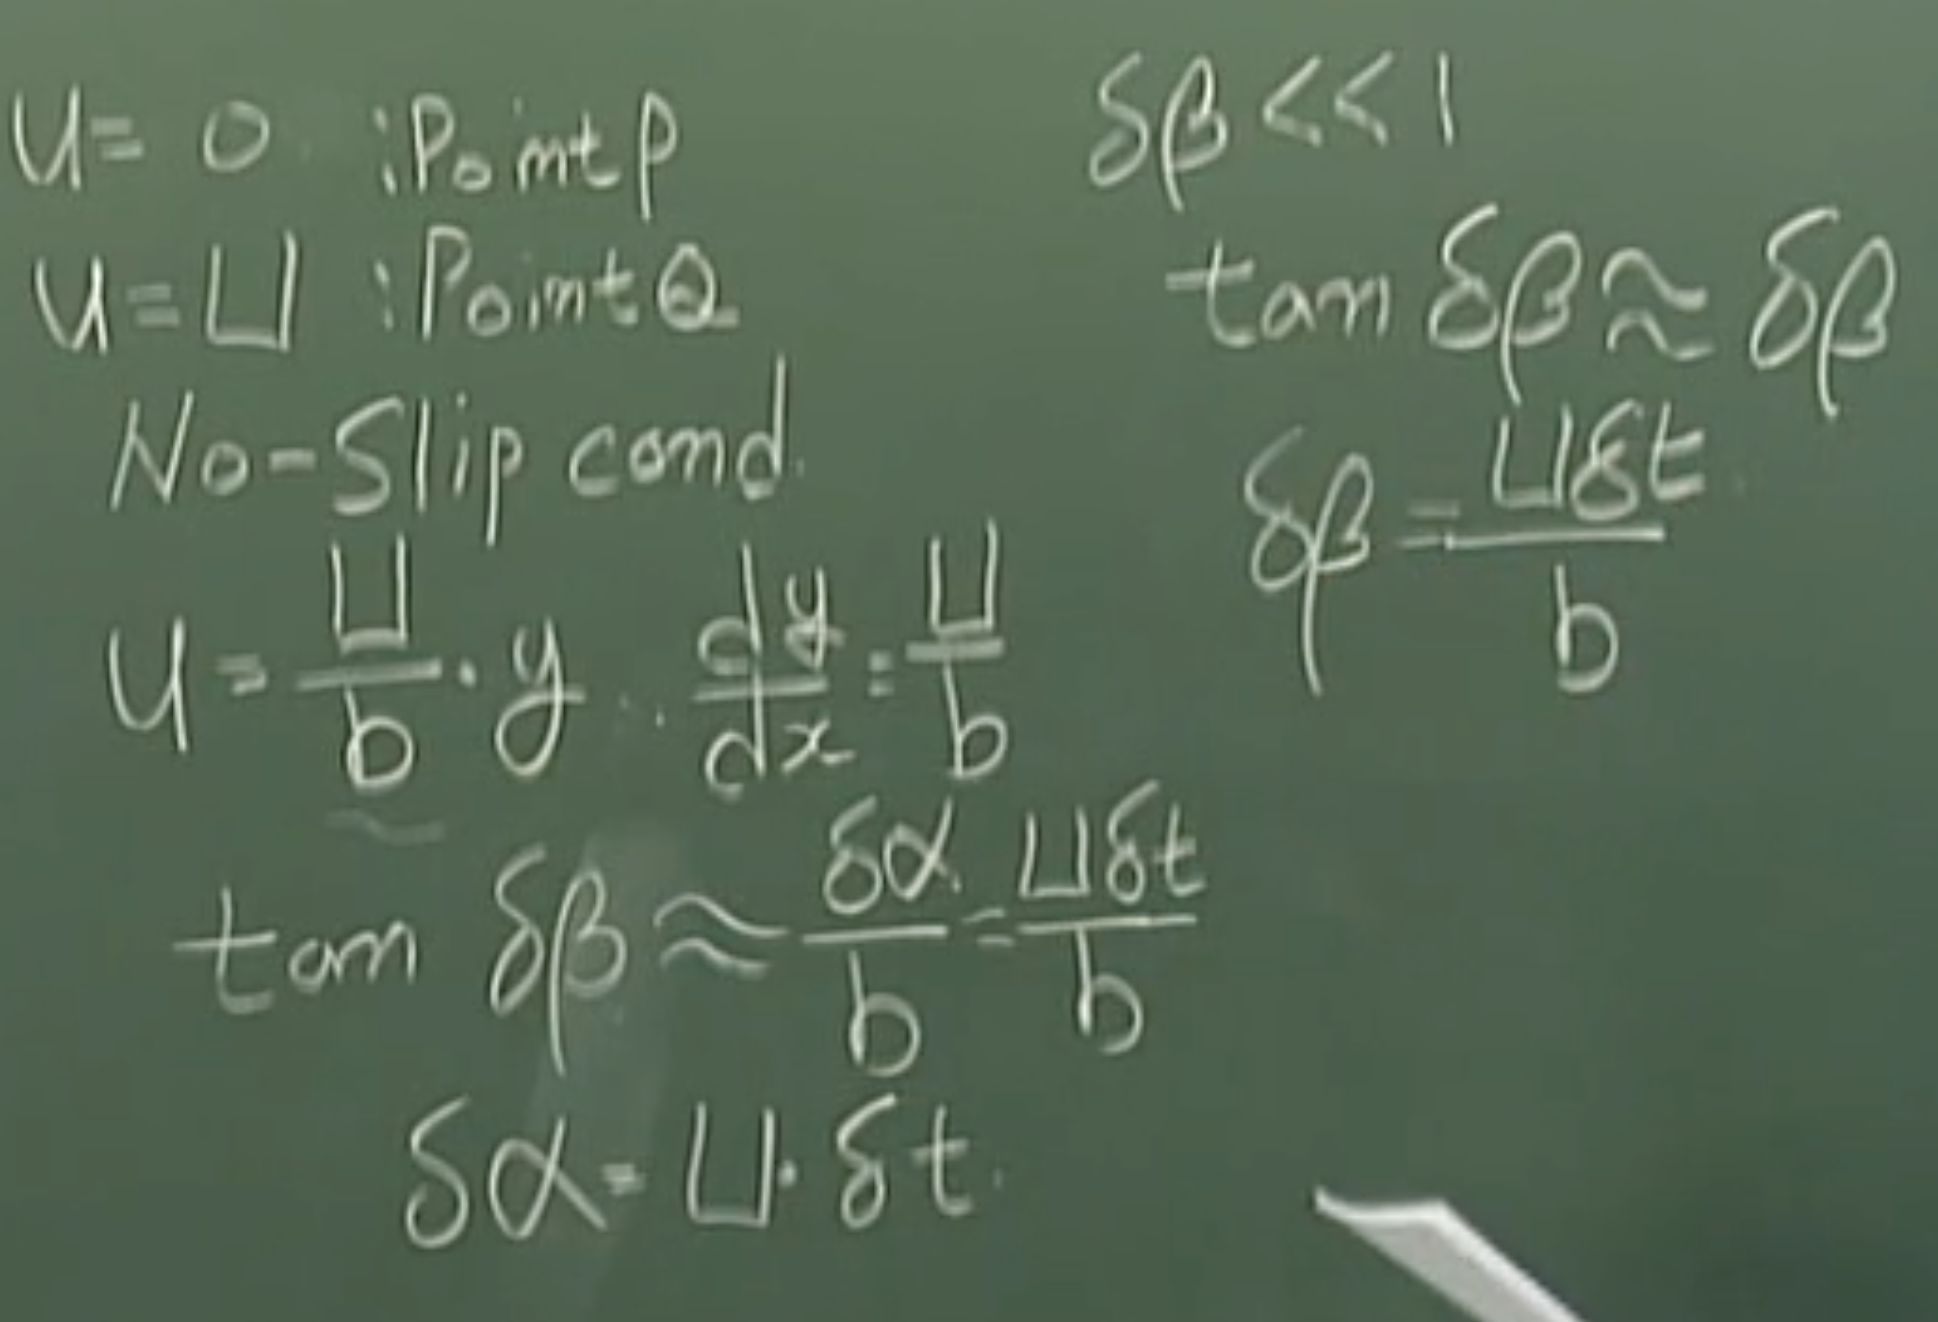 u = 0 : Point P
u = U : Point Q
No-Slip cond.
u = U/b · y . dy/dx = U/b
tan δβ ≈ δα/b = Uδt/b
δα = U · δt.
δβ << 1
tan δβ ≈ δβ
δβ = Uδt/b